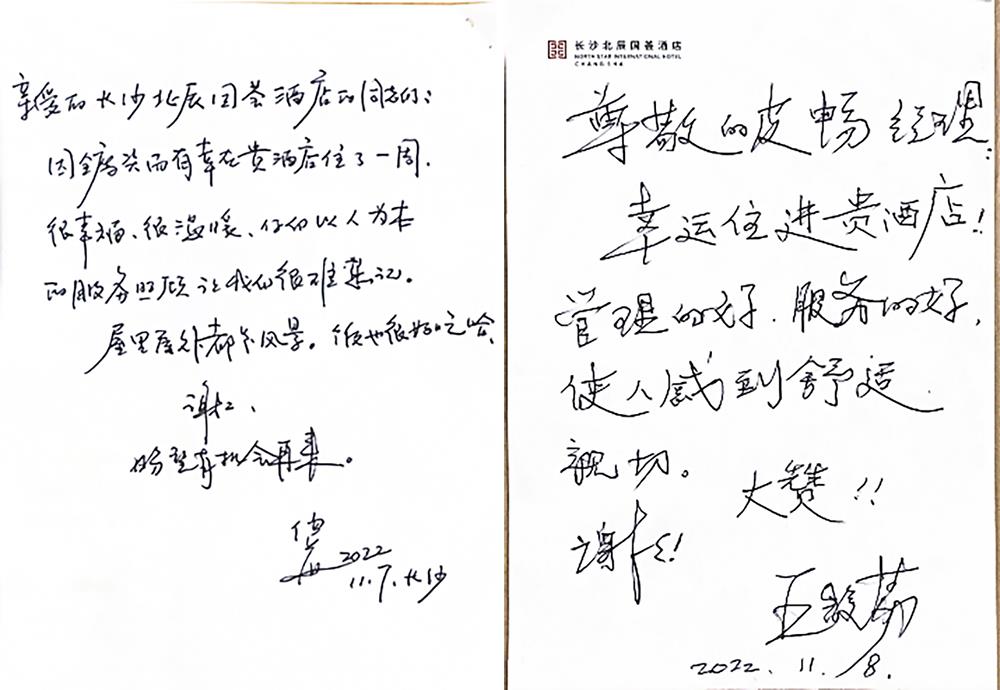 亲爱的长沙北辰国荟酒店的同志们:
因金鸡奖而有幸在贵酒店住了一周.
很幸福、很温暖、你们以人为本
的服务照顾让我们很难忘记。
屋里屋外都是风景。饭也很好吃哈
谢谢、
盼望有机会再来。
2022
11.7.长沙
长沙北辰国荟酒店
NORTH STAR INTERNATIONAL HOTEL
CHANGSHA
尊敬的皮畅经理:
幸运住进贵酒店!
管理的好.服务的好,
使人感到舒适
亲切。
大赞!!
谢谢!
王馥荔
2022.11.8.